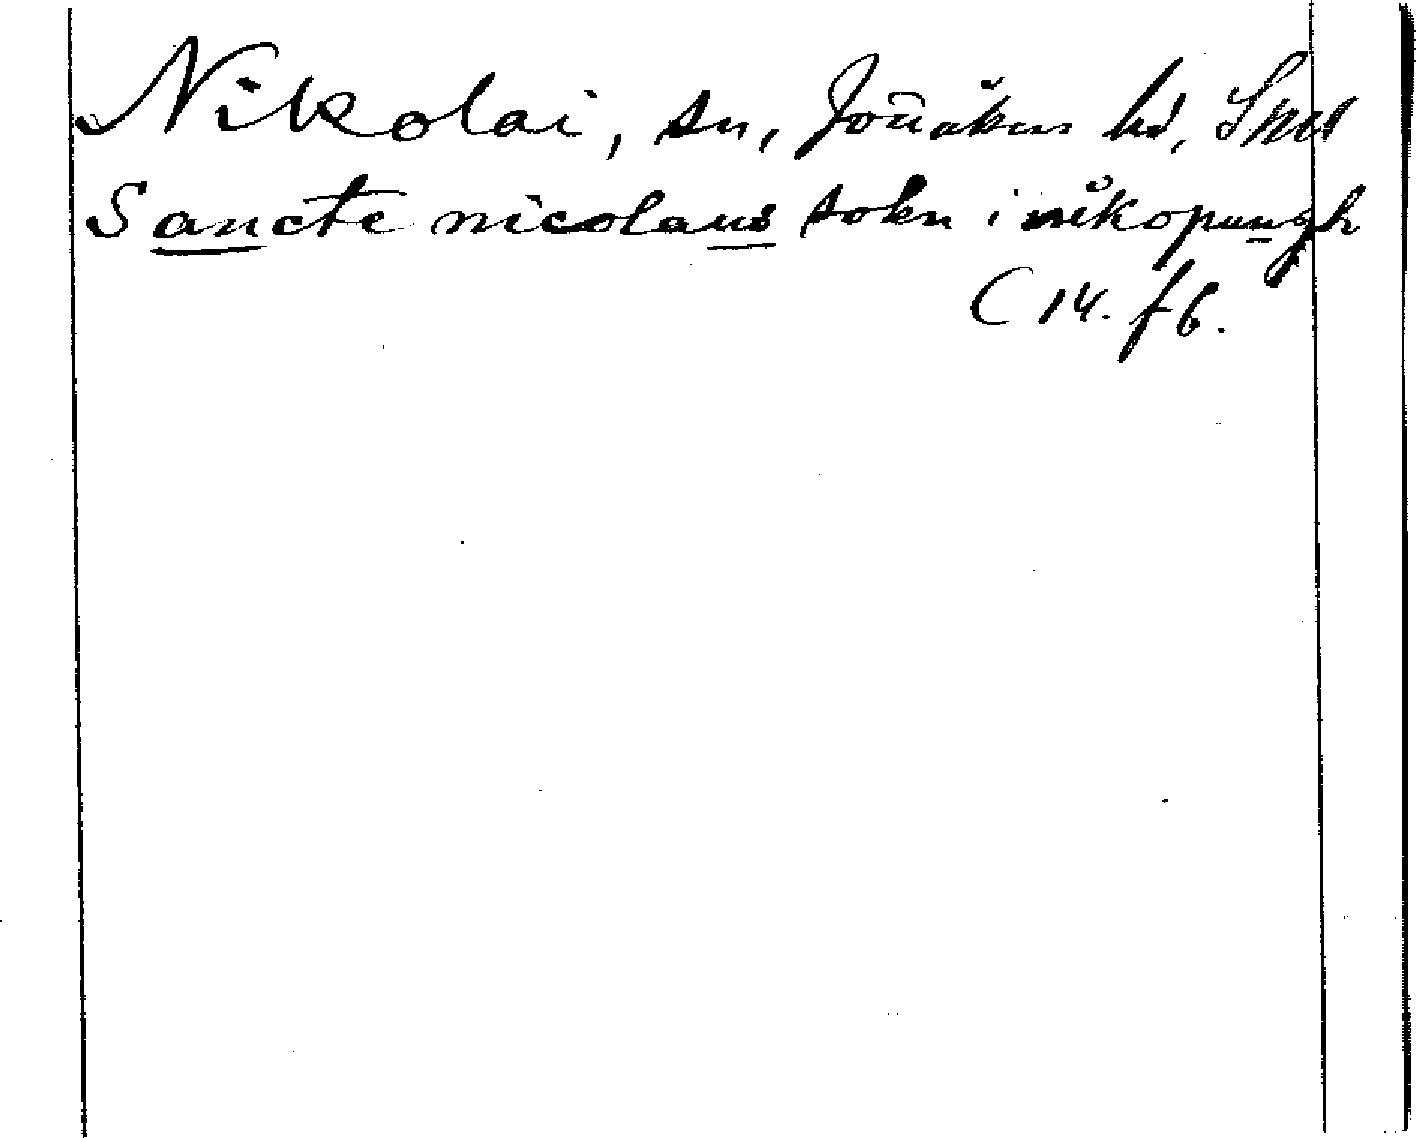 Nikolai, sn, Jönåkers hd, Srml
Sancte nicolaus sokn i nikopungh
C 14. f 6.